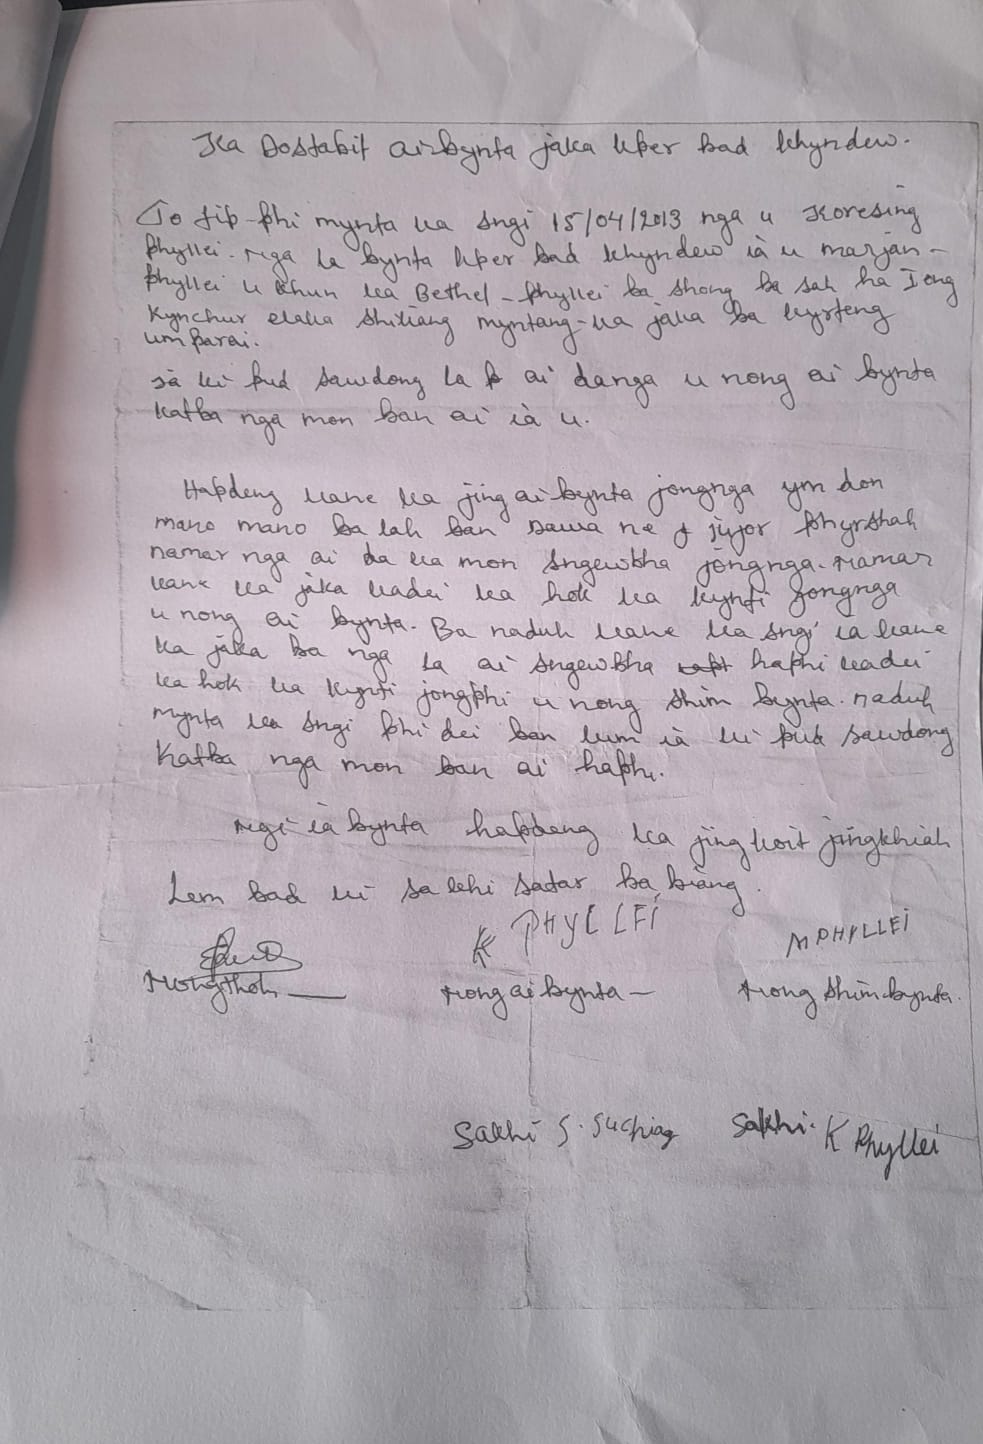 Ka Dostabit aibynta jaka kper bad khyndew.
To tip phi mynta ka sngi 15/04/2013 nga u Koresing
Phyllei. Nga la bynta kper bad khyndew ïà u marjan-
phyllei u khun ka Bethel-phyllei ba shong ba sah ha Iong
Kynchur elaka Shiliang myntang-ka jaka ba kyrteng
umparai.
ïà ki pud sawdong la p ai da nga u nong ai bynta
katba nga mon ban ai ïà u.
Hapdeng kane ka jing ai bynta jongnga ym don
mano mano ba lah ban dawa ne jujor phyrshah
namar nga ai da ka mon sngewbha jongnga. Namar
kane ka jaka kadei ka hok ka kynti jongnga
u nong ai bynta. Ba naduh kane ka sngi ia kane
ka jaka ba nga la ai sngewbha haphi kadei
ka hok ka kynti jongphi u nong shim bynta. naduh
mynta ka sngi phi dei ban kum ïà ki pud sawdong
katba nga mon ban ai haphi.
Ngi ïa bynta hapdeng ka jingkoit jingkhiah
Lem bad ki sakhi sadar ba biang.
K PHYLLEI MPHYLLEI
Nongthoh Nong ai bynta- Nong shim bynta.
Sakhi S. Suchiang Sakhi. K Phyllei